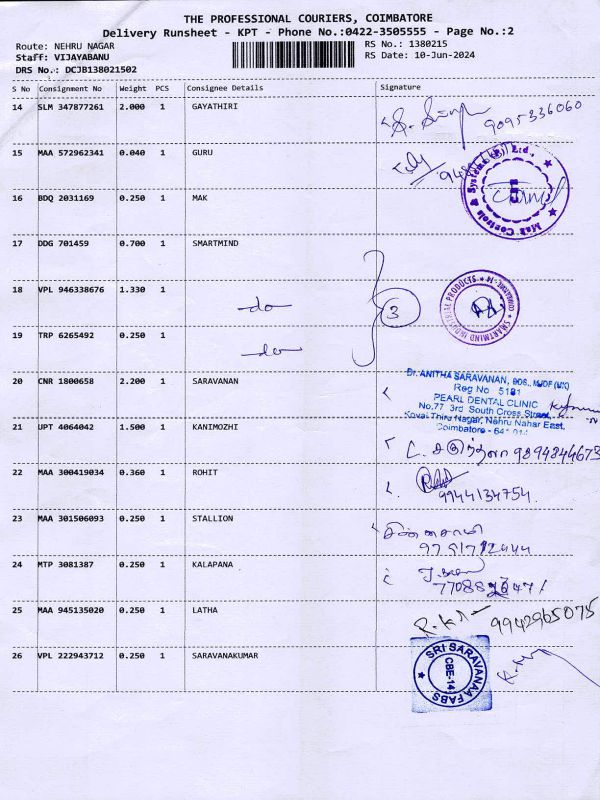 THE PROFESSIONAL COURIERS, COIMBATORE
Delivery Runsheet - KPT - Phone No.:0422-3505555 - Page No.:2
Route: NEHRU NAGAR RS No.: 1380215
Staff: VIJAYABANU RS Date: 10-Jun-2024
DRS No.: DCJB138021502
S No Consignment No Weight PCS Consignee Details Signature
14 SLM 347877261 2.000 1 GAYATHIRI
9095336060
15 MAA 572962341 0.040 1 GURU
16 BDQ 2031169 0.250 1 MAK
Mak Controls & Systems (P) Ltd.,
17 DDG 701459 0.700 1 SMARTMIND
18 VPL 946338676 1.330 1 -do- 3
SMARTMIND INDUSTRIAL PRODUCTS ★ COIMBATORE-14 ★
19 TRP 6265492 0.250 1 -do-
20 CNR 1800658 2.200 1 SARAVANAN
Dr. ANITHA SARAVANAN, BDS., MJDF (UK)
Reg No 5191
PEARL DENTAL CLINIC
No.77 3rd South Cross Street
Kovai Thiru Nagar, Nehru Nahar East,
Coimbatore - 641 014
21 UPT 4064042 1.500 1 KANIMOZHI
9894844673
22 MAA 300419034 0.360 1 ROHIT
9944134754
23 MAA 301506093 0.250 1 STALLION
சின்னசாமி
24 MTP 3081387 0.250 1 KALAPANA
25 MAA 945135020 0.250 1 LATHA
9942965075
26 VPL 222943712 0.250 1 SARAVANAKUMAR
SRI SARAVANAA FABS
CBE-14